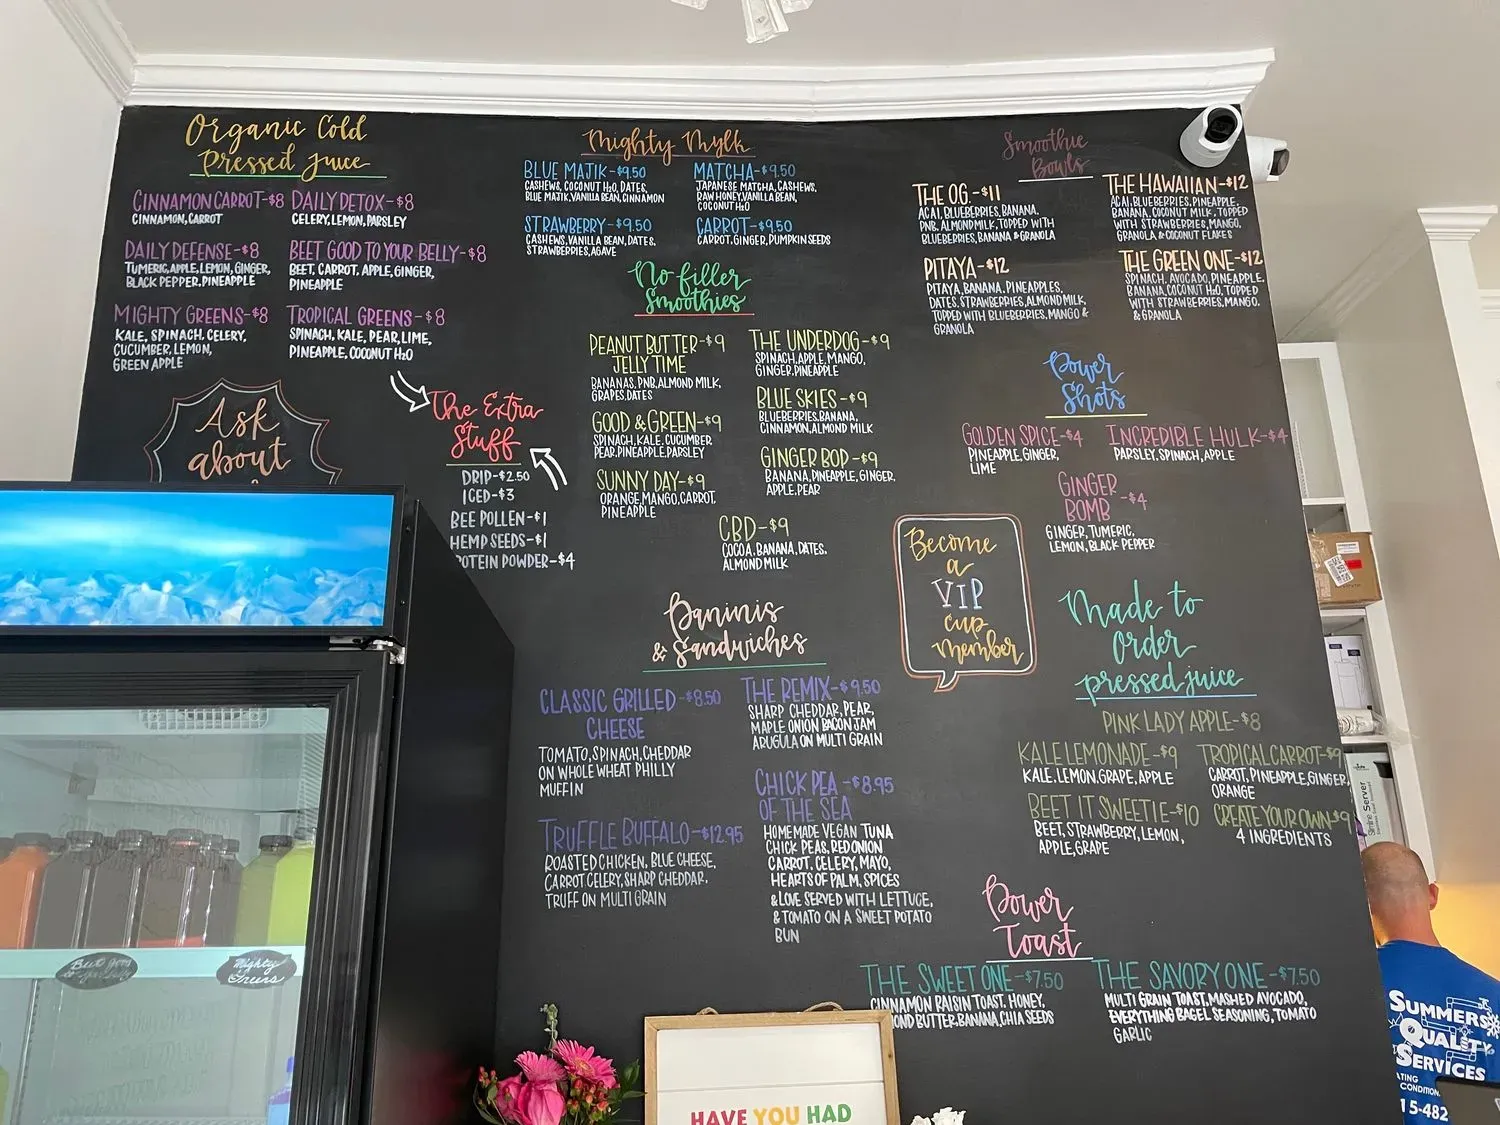 Organic Cold
Pressed Juice
CINNAMON CARROT-$8
CINNAMON, CARROT
DAILY DETOX-$8
CELERY, LEMON, PARSLEY
DAILY DEFENSE-$8
TUMERIC, APPLE, LEMON, GINGER,
BLACK PEPPER, PINEAPPLE
BEET GOOD TO YOUR BELLY-$8
BEET, CARROT, APPLE, GINGER,
PINEAPPLE
MIGHTY GREENS-$8
KALE, SPINACH, CELERY,
CUCUMBER, LEMON,
GREEN APPLE
TROPICAL GREENS-$8
SPINACH, KALE, PEAR, LIME,
PINEAPPLE, COCONUT H2O
Ask
about
The Extra
Stuff
DRIP-$2.50
ICED-$3
BEE POLLEN-$1
HEMP SEEDS-$1
OTEIN POWDER-$4
Mighty Mylk
BLUE MAJIK-$9.50
CASHEWS, COCONUT H2O, DATES,
BLUE MAJIK, VANILLA BEAN, CINNAMON
MATCHA-$9.50
JAPANESE MATCHA, CASHEWS,
RAW HONEY, VANILLA BEAN,
COCONUT H2O
STRAWBERRY-$9.50
CASHEWS, VANILLA BEAN, DATES,
STRAWBERRIES, AGAVE
CARROT-$9.50
CARROT, GINGER, PUMPKIN SEEDS
No filler
Smoothies
PEANUT BUTTER-$9
JELLY TIME
BANANAS, PNB, ALMOND MILK,
GRAPES, DATES
THE UNDERDOG-$9
SPINACH, APPLE, MANGO,
GINGER, PINEAPPLE
GOOD & GREEN-$9
SPINACH, KALE, CUCUMBER
PEAR, PINEAPPLE, PARSLEY
BLUE SKIES-$9
BLUEBERRIES, BANANA,
CINNAMON, ALMOND MILK
SUNNY DAY-$9
ORANGE, MANGO, CARROT,
PINEAPPLE
GINGER BOD-$9
BANANA, PINEAPPLE, GINGER,
APPLE, PEAR
CBD-$9
COCOA, BANANA, DATES,
ALMOND MILK
Paninis
& Sandwiches
CLASSIC GRILLED-$8.50
CHEESE
TOMATO, SPINACH, CHEDDAR
ON WHOLE WHEAT PHILLY
MUFFIN
THE REMIX-$9.50
SHARP CHEDDAR, PEAR,
MAPLE ONION BACON JAM
ARUGULA ON MULTI GRAIN
TRUFFLE BUFFALO-$12.95
ROASTED CHICKEN, BLUE CHEESE,
CARROT, CELERY, SHARP CHEDDAR,
TRUFF ON MULTI GRAIN
CHICK PEA-$8.95
OF THE SEA
HOMEMADE VEGAN TUNA
CHICK PEAS, RED ONION
CARROT, CELERY, MAYO,
HEARTS OF PALM, SPICES
& LOVE SERVED WITH LETTUCE,
& TOMATO ON A SWEET POTATO
BUN
Smoothie
Bowls
THE O.G.-$11
ACAI, BLUEBERRIES, BANANA,
PNB, ALMOND MILK, TOPPED WITH
BLUEBERRIES, BANANA & GRANOLA
THE HAWAIIAN-$12
ACAI, BLUEBERRIES, PINEAPPLE,
BANANA, COCONUT MILK, TOPPED
WITH STRAWBERRIES, MANGO,
GRANOLA & COCONUT FLAKES
PITAYA-$12
PITAYA, BANANA, PINEAPPLES,
DATES, STRAWBERRIES, ALMOND MILK,
TOPPED WITH BLUEBERRIES, MANGO &
GRANOLA
THE GREEN ONE-$12
SPINACH, AVOCADO, PINEAPPLE,
BANANA, COCONUT H2O, TOPPED
WITH STRAWBERRIES, MANGO,
& GRANOLA
Power
Shots
GOLDEN SPICE-$4
PINEAPPLE, GINGER,
LIME
INCREDIBLE HULK-$4
PARSLEY, SPINACH, APPLE
GINGER
BOMB-$4
GINGER, TUMERIC,
LEMON, BLACK PEPPER
Become
a
VIP
cup
member
Made to
Order
pressed juice
PINK LADY APPLE-$8
KALE LEMONADE-$9
KALE, LEMON, GRAPE, APPLE
TROPICAL CARROT-$9
CARROT, PINEAPPLE, GINGER,
ORANGE
BEET IT SWEETIE-$10
BEET, STRAWBERRY, LEMON,
APPLE, GRAPE
CREATE YOUR OWN $9
4 INGREDIENTS
Power
Toast
THE SWEET ONE-$7.50
CINNAMON RAISIN TOAST, HONEY,
OND BUTTER, BANANA, CHIA SEEDS
THE SAVORY ONE-$7.50
MULTI GRAIN TOAST, MASHED AVOCADO,
EVERYTHING BAGEL SEASONING, TOMATO
GARLIC
Mighty
Greens
HAVE YOU HAD
SUMMERS
QUALITY
SERVICES
ATING
CONDITION
15-482